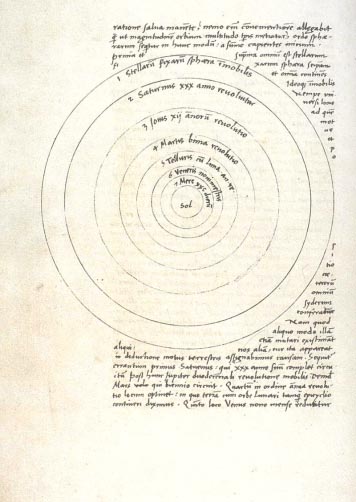 ratione salua manente, nemo em convenientiore allegabit
q̃ ut magnitudinē orbium multitudo tp̃is metiatur, ordo sphę-
rarum sequitur in hunc modū, a summo capientes initium.
prima et suprema omniū est stellarum
fi xarum sphæra seipsam
et omnia continēs
Ideoq; īmobilis
nempe uni
uersi locus
ad quē
mot
1 Stellarū fixarū sphæra īmobilis
2 Saturnus xxx anno reuoluitur
3 Jouis xij annorū reuolutio
4 Martis bima reuolutio
5 Telluris cū Luna an re
6 Veneris nonimestris
7 Merc
Sol
syderum
comparabitur
Nam quod
aliquo modo illā
etiā mutari existimāt
aliqui: nos aliā, cur ita appareat
in deductione motus terrestris assignabimus causam. Sequitur
errantium primus Saturnus: qui xxx anno suū complet circu
itū post hunc Jupiter duodecennali reuolutione mobilis. Deinde
Mars uolo qui biennio circuit. Quartū in ordine annua reuolu-
tio locum optinet: in quo terrā cum orbe Lunari tanq̃ epicyclio
contineri diximus. Quinto loco Venus nono mense reducitur